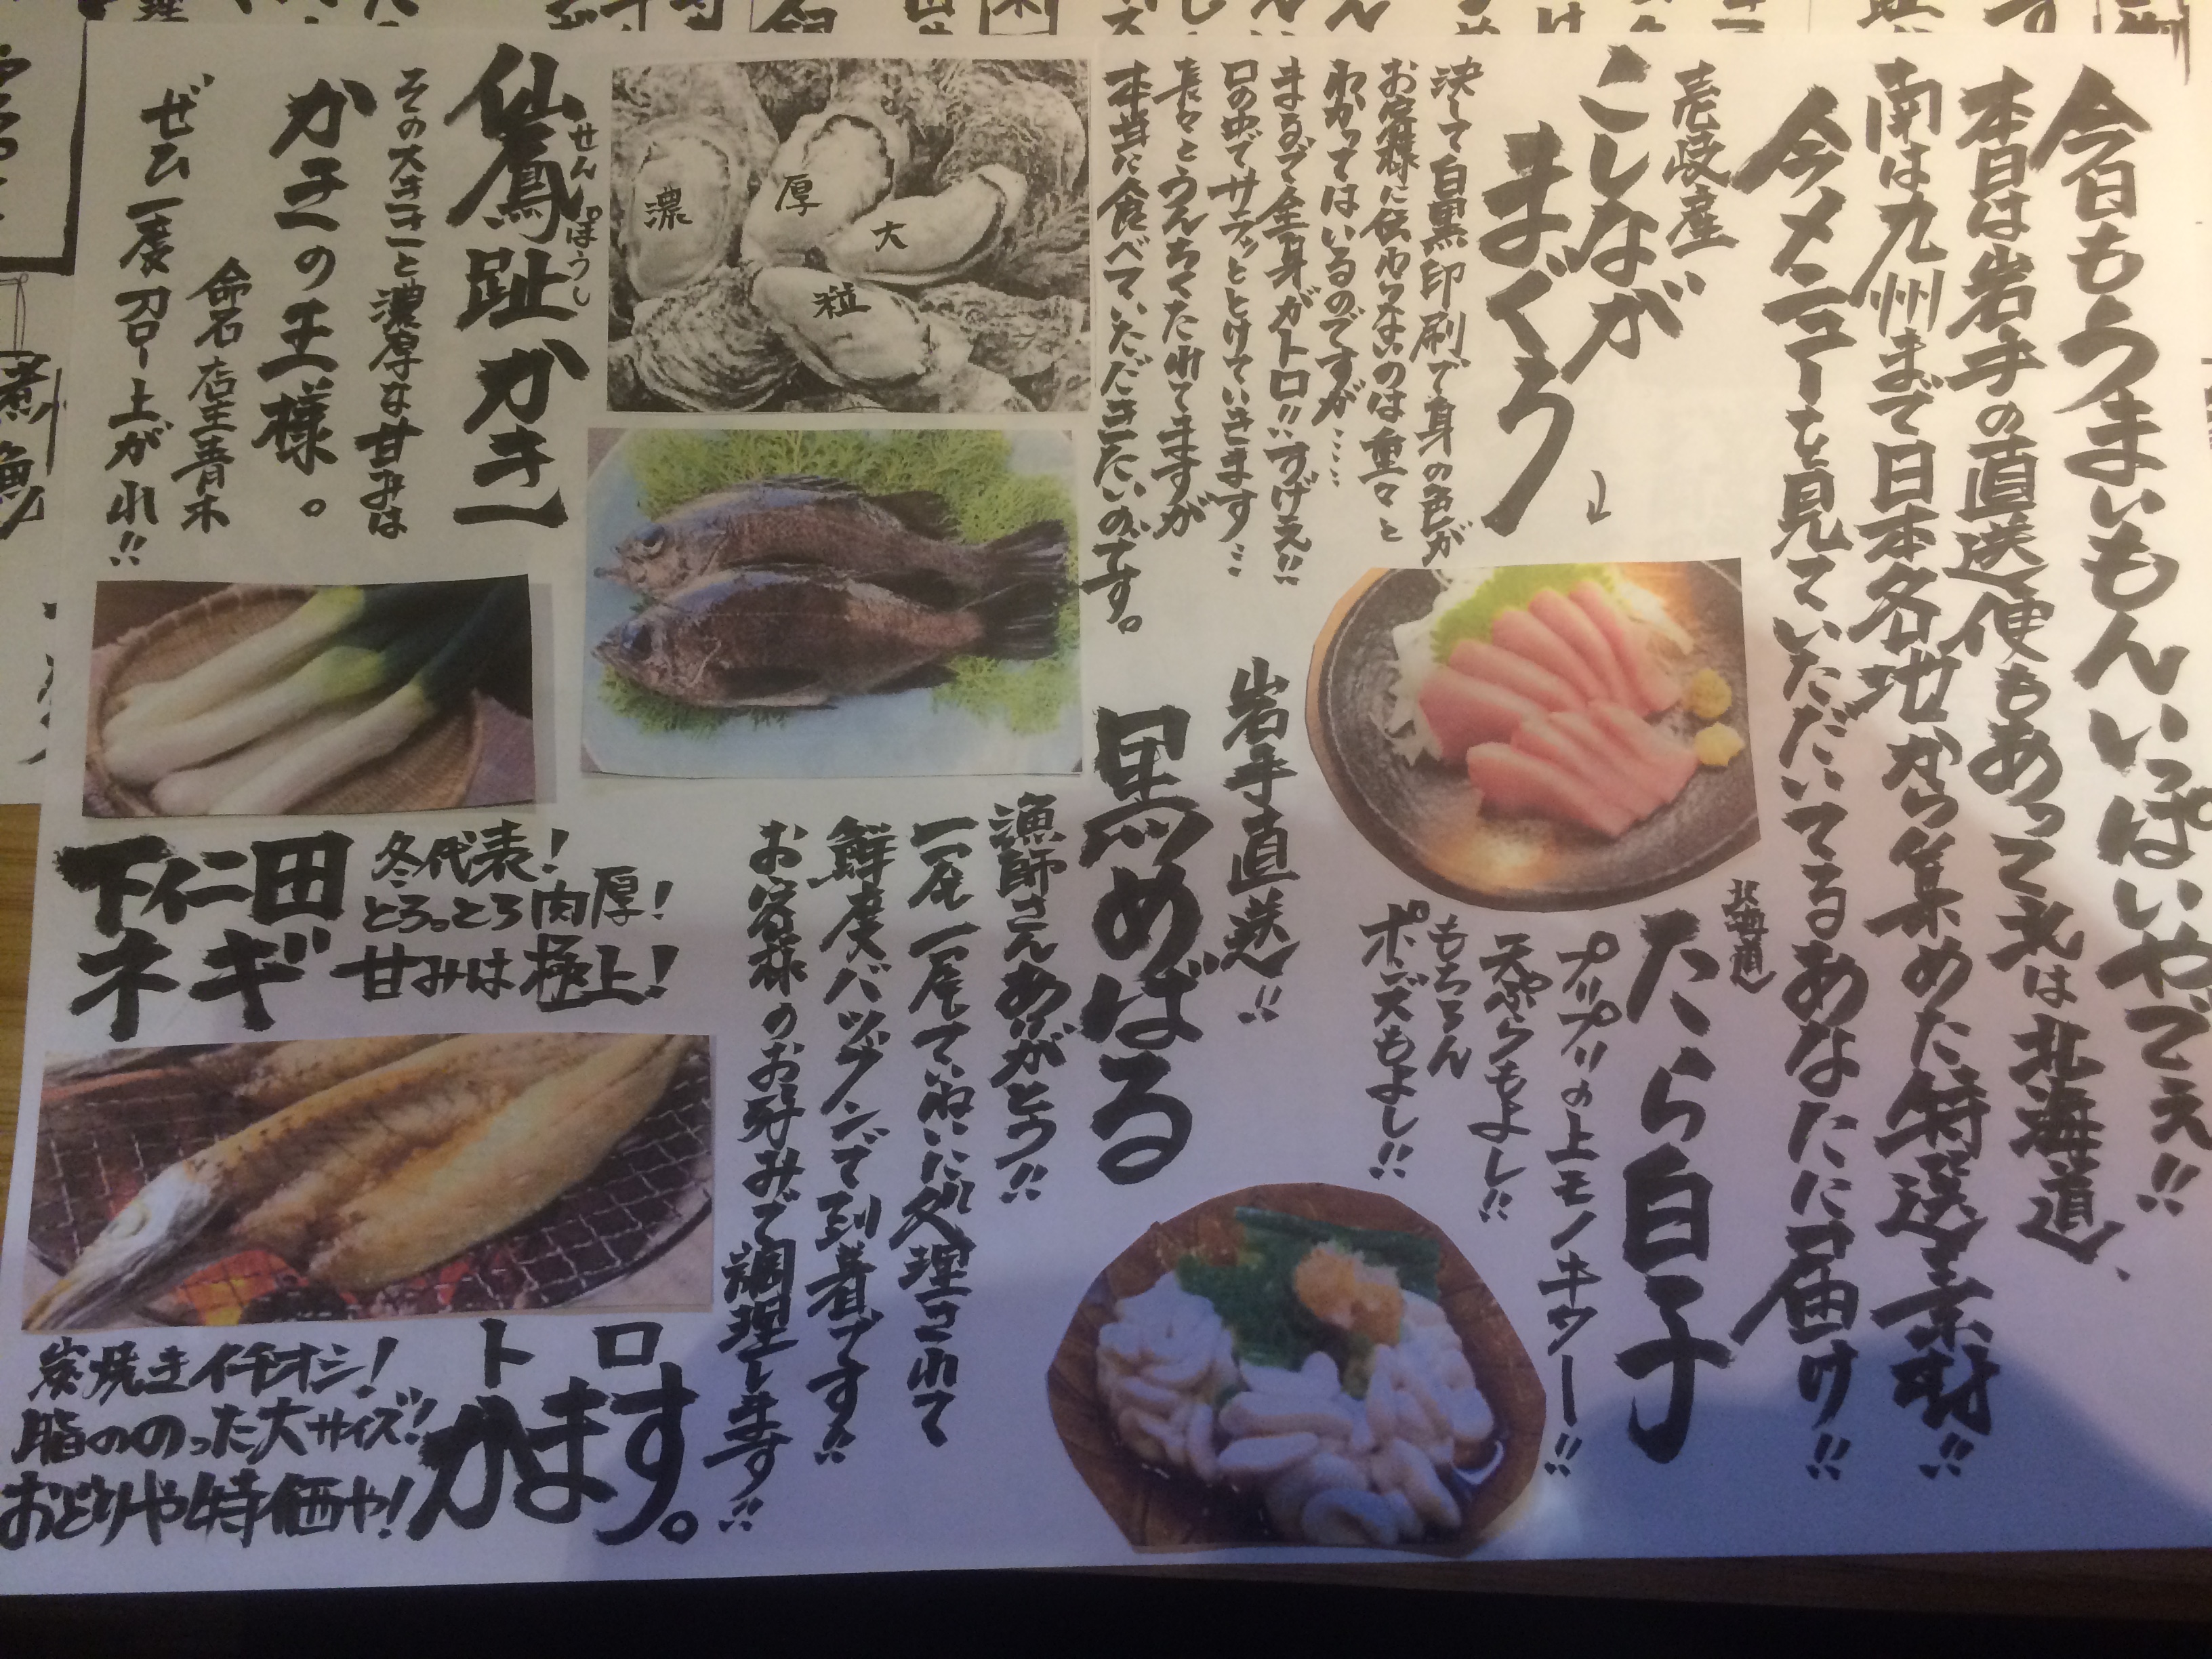 今日もうまいもんいっぱいやでえ!!
本日は岩手の直送便もあって北は北海道、
南は九州まで日本各地から集めた特選素材!!
今メニューを見ていただいてるあなたに届け!!
壱岐産、
こしなが
まぐろ
決して白黒印刷で身の色が
お客様に伝わらないのは重々と
わかってはいるのですが……
まるで全身がトロ!!すげえ!!
口の中でサラッととけていきます…
長々とうんちくたれてますが
本当に食べていただきたいのです。
北海道
たら白子
プリプリの上モノキター!!
天ぷらもよし!!
もちろん
ポンズもよし!!
岩手直送!!
黒めばる
漁師さんありがとう!!
一尾一尾ていねいに処理されて
鮮度バツグンで到着です!!
お客様のお好みで調理します!!
濃
厚
大
粒
仙鳳趾かき
せんぽうし
その大きさと濃厚な甘みは
かきの王様。
命名 店主青木
ぜひ一度召し上がれ!!
下仁田
ネギ
冬代表!
とろっとろ肉厚!
甘みは極上!
トロ
かます。
炭焼きイチオシ!
脂ののった大サイズ!
おどりや特価や!